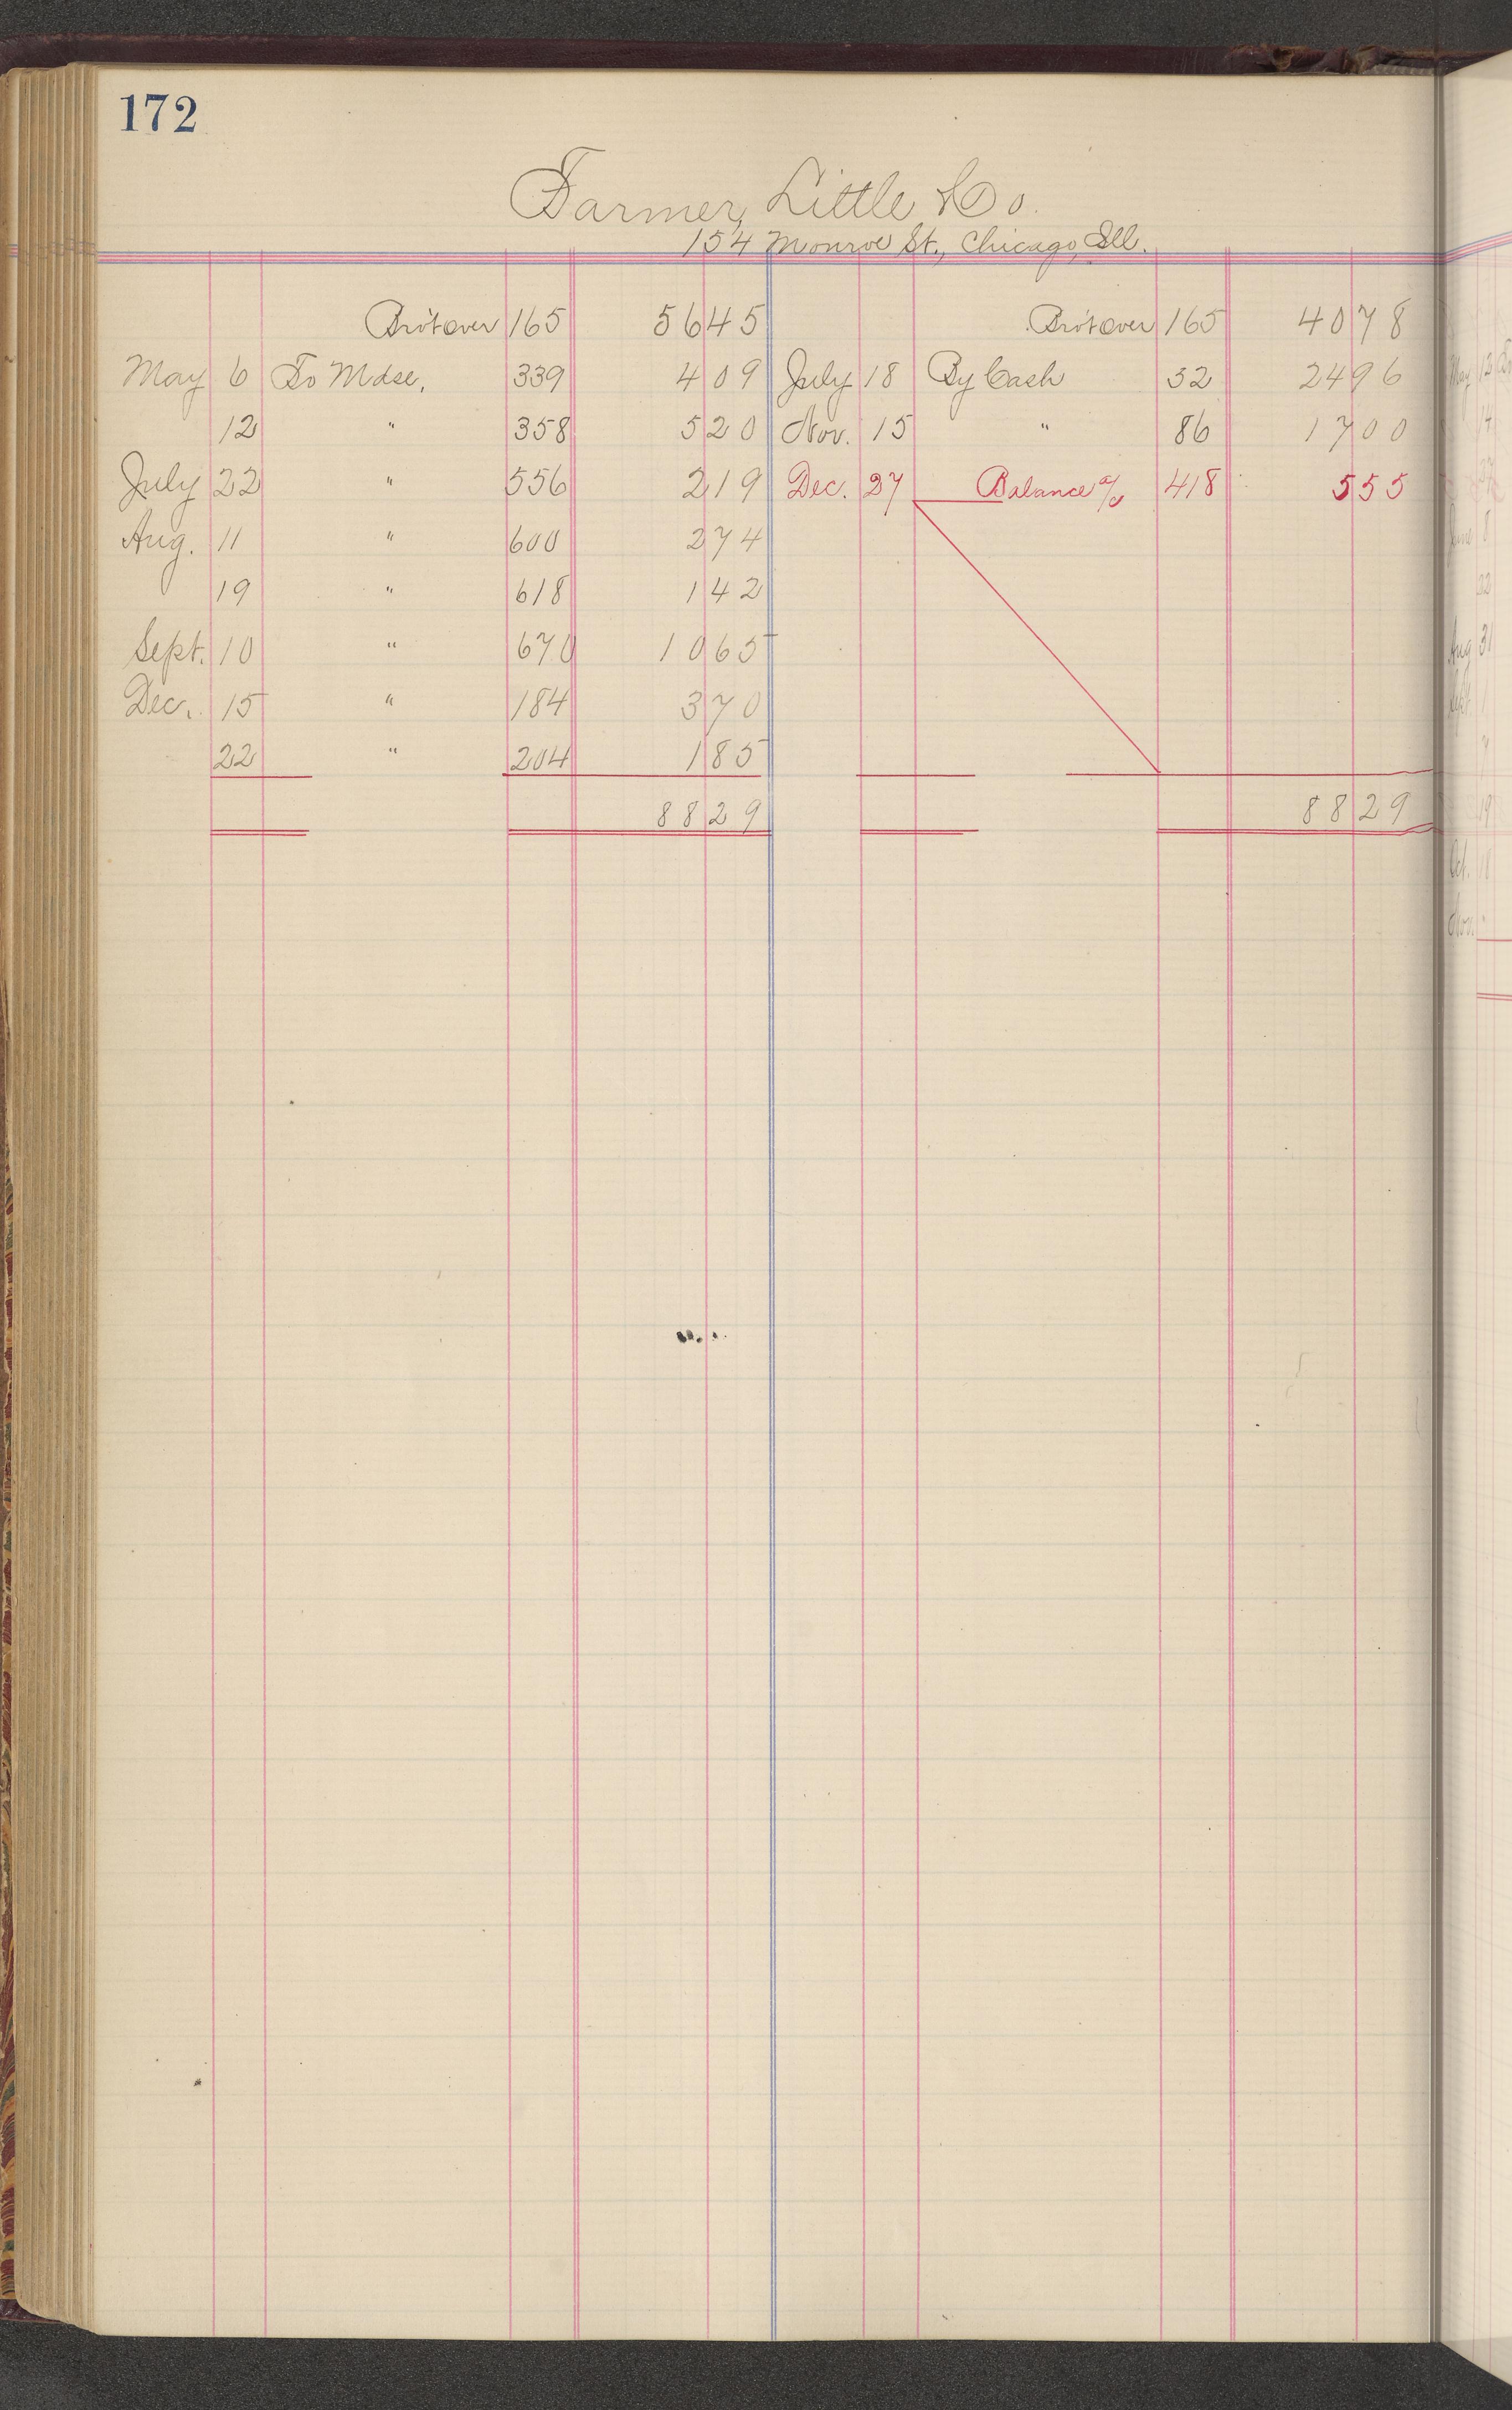 172
Farmer, Little & Co.
154 Monroe St., Chicago, Ill.
Bro't over 165 56 45 Bro't over 165 40 78
May 6 To Mdse. 339 4 09 July 18 By Cash 32 24 96
12 " 358 5 20 Nov. 15 " 86 17 00
July 22 " 556 2 19 Dec. 27 Balance a/c 418 5 55
Aug. 11 " 600 2 74
19 " 618 1 42
Sept. 10 " 670 10 65
Dec. 15 " 184 3 70
22 " 204 1 85
88 29 88 29